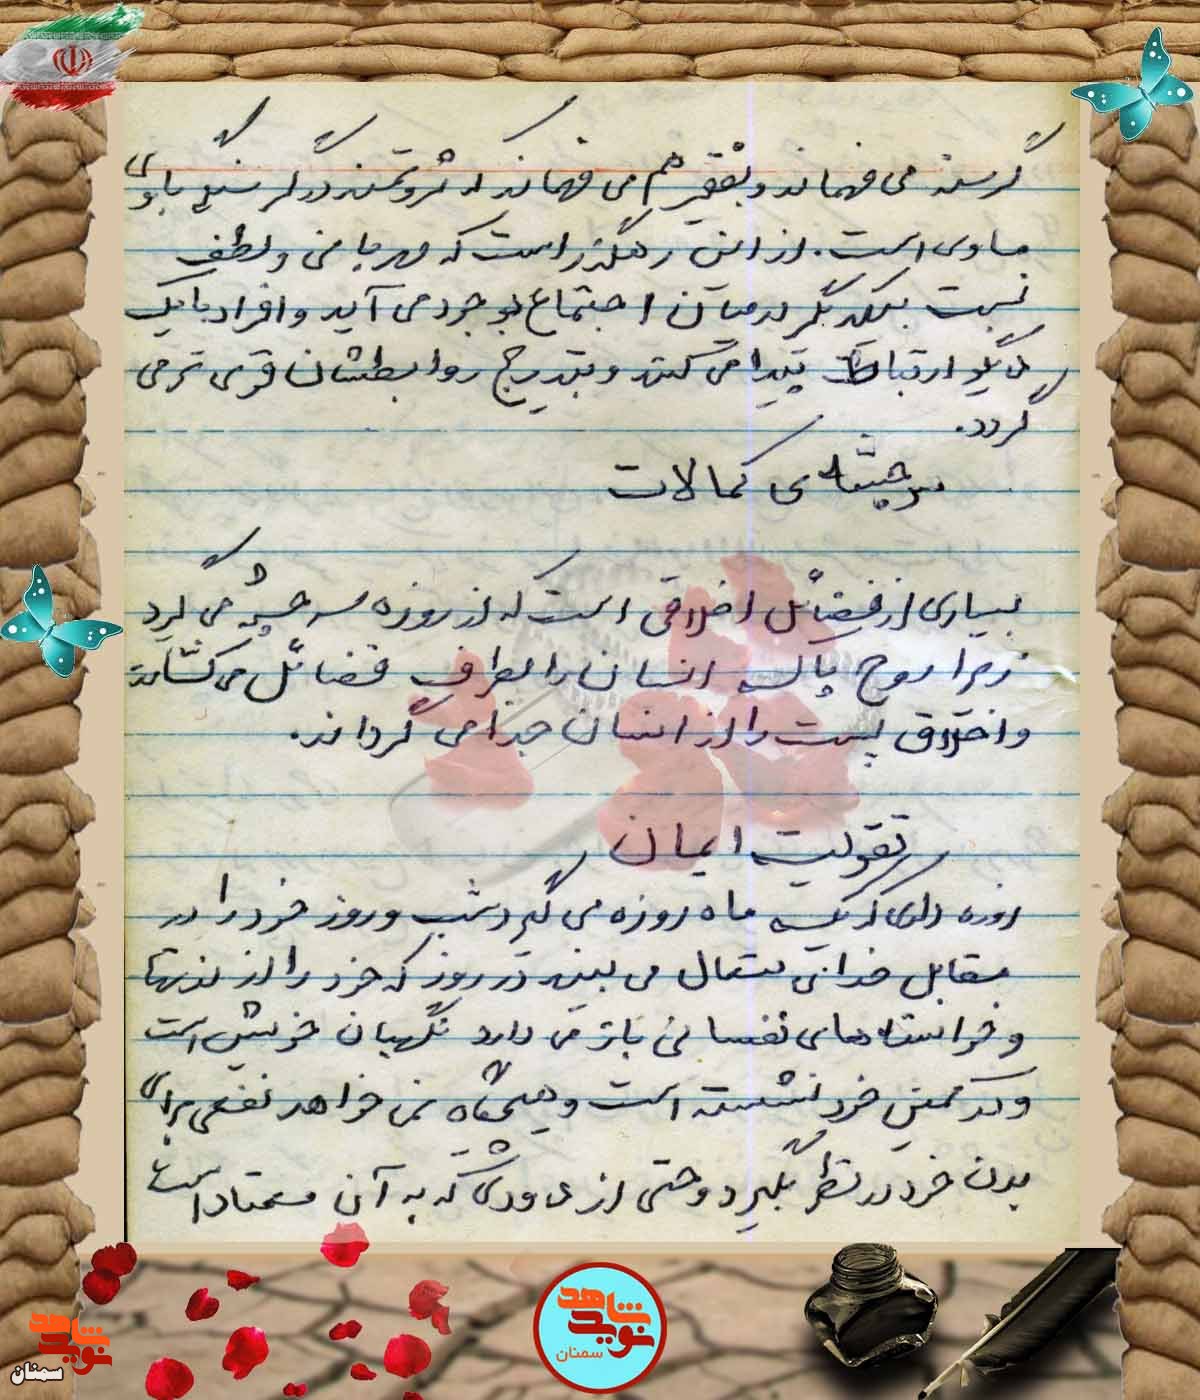 گرسنه می فهماند و بفقیر هم می فهماند که ثروتمند در گرسنگی با وی
مساوی است. از این رهگذر است که مهربانی و لطف
نسبت بیکدیگر در میان اجتماع بوجود می آید و افراد با یک
دیگر ارتباط پیدا می کنند و بتدریج روابطشان قوی تر می
گردد.
سرچشمه ی کمالات
بسیاری از فضائل اخلاقی است که از روزه سرچشمه می گیرد
زیرا روح پاک انسان را بطرف فضائل می کشاند
و اخلاق پست را از انسان جدا می گرداند.
تقویت ایمان
روزه داری که یک ماه روزه می گیرد شب و روز خود را در
مقابل خدای متعال می بیند در روز که خود را از لذتها
و خواسته های نفسانی باز می دارد نگهبان خویش است
و در کمین خود نشسته است و هیچگاه نمی خواهد نفعی برای
بدن خود در نظر بگیرد و حتی از که به آن معتاد است
نوید شاهد
سمنان
نوید شاهد
سمنان